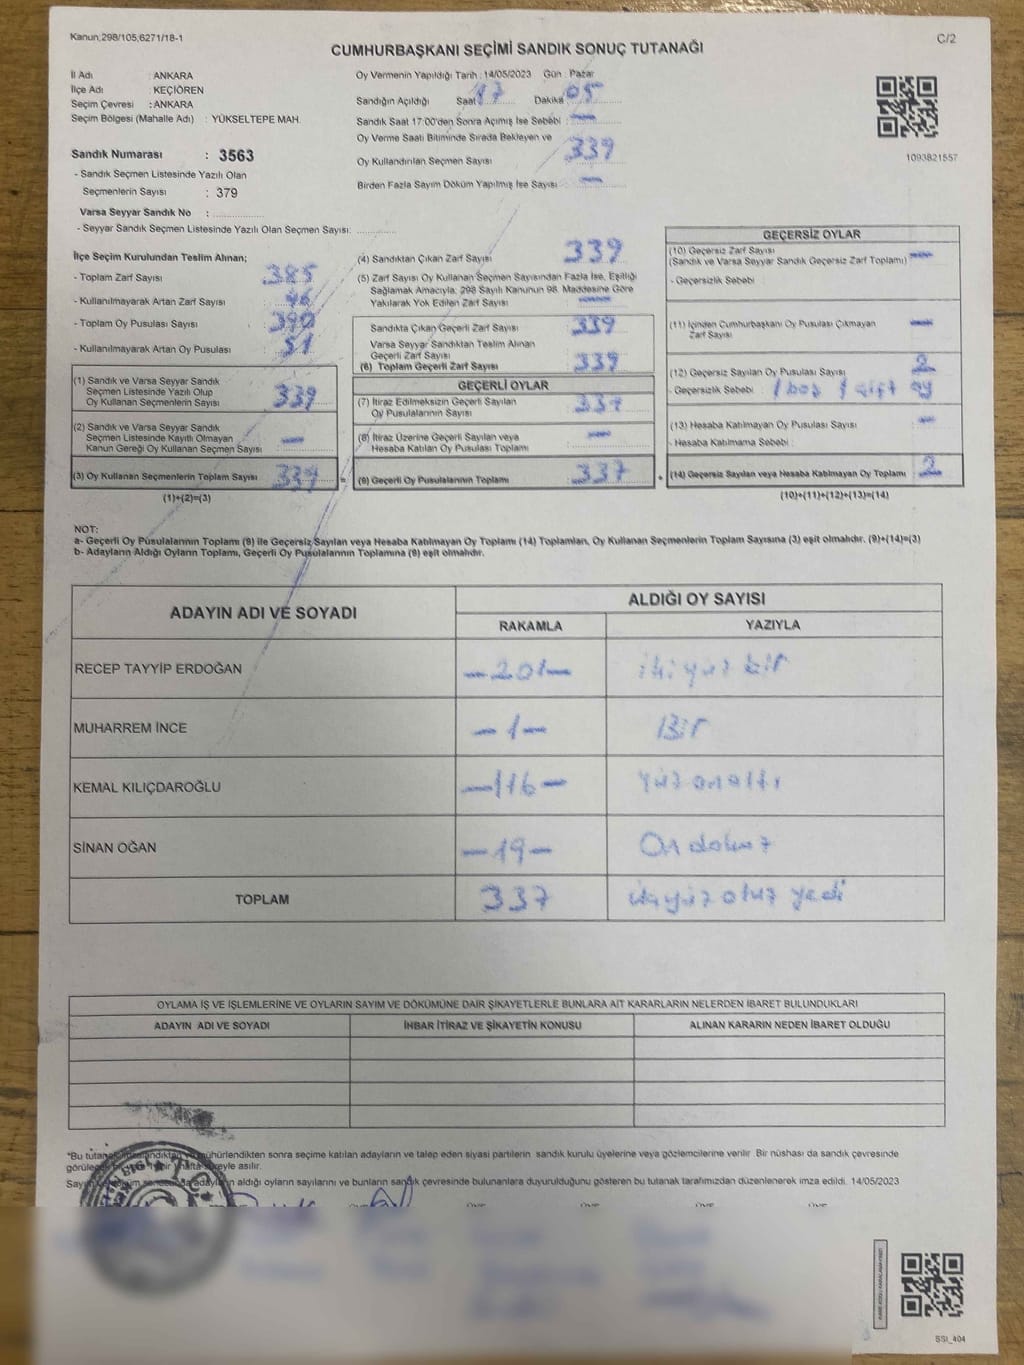 Kanun;298/105,6271/18-1
C/2
CUMHURBAŞKANI SEÇİMİ SANDIK SONUÇ TUTANAĞI
İl Adı : ANKARA
İlçe Adı : KEÇİÖREN
Seçim Çevresi : ANKARA
Seçim Bölgesi (Mahalle Adı) : YÜKSELTEPE MAH.
Sandık Numarası : 3563
- Sandık Seçmen Listesinde Yazılı Olan
Seçmenlerin Sayısı : 379
Varsa Seyyar Sandık No :
- Seyyar Sandık Seçmen Listesinde Yazılı Olan Seçmen Sayısı:
Oy Vermenin Yapıldığı Tarih : 14/05/2023 Gün : Pazar
Sandığın Açıldığı Saat 17 Dakika 05
Sandık Saat 17:00'den Sonra Açımış İse Sebebi : —
Oy Verme Saati Bitiminde Sırada Bekleyen ve
Oy Kullandırılan Seçmen Sayısı 339
Birden Fazla Sayım Döküm Yapılmış İse Sayısı —
1093821557
İlçe Seçim Kurulundan Teslim Alınan;
- Toplam Zarf Sayısı 385
- Kullanılmayarak Artan Zarf Sayısı 46
- Toplam Oy Pusulası Sayısı 390
- Kullanılmayarak Artan Oy Pusulası 51
(1) Sandık ve Varsa Seyyar Sandık
Seçmen Listesinde Yazılı Olup
Oy Kullanan Seçmenlerin Sayısı 339
(2) Sandık ve Varsa Seyyar Sandık
Seçmen Listesinde Kayıtlı Olmayan
Kanun Gereği Oy Kullanan Seçmen Sayısı —
(3) Oy Kullanan Seçmenlerin Toplam Sayısı 339
(1)+(2)=(3)
(4) Sandıktan Çıkan Zarf Sayısı 339
(5) Zarf Sayısı Oy Kullanan Seçmen Sayısından Fazla İse, Eşitliği
Sağlamak Amacıyla; 298 Sayılı Kanunun 98. Maddesine Göre
Yakılarak Yok Edilen Zarf Sayısı —
Sandıkta Çıkan Geçerli Zarf Sayısı 339
Varsa Seyyar Sandıktan Teslim Alınan
Geçerli Zarf Sayısı
(6) Toplam Geçerli Zarf Sayısı 339
GEÇERLİ OYLAR
(7) İtiraz Edilmeksizin Geçerli Sayılan
Oy Pusulalarının Sayısı 337
(8) İtiraz Üzerine Geçerli Sayılan veya
Hesaba Katılan Oy Pusulası Toplamı —
= (9) Geçerli Oy Pusulalarının Toplamı 337 +
GEÇERSİZ OYLAR
(10) Geçersiz Zarf Sayısı
(Sandık ve Varsa Seyyar Sandık Geçersiz Zarf Toplamı) —
- Geçersizlik Sebebi :
(11) İçinden Cumhurbaşkanı Oy Pusulası Çıkmayan
Zarf Sayısı —
(12) Geçersiz Sayılan Oy Pusulası Sayısı 2
- Geçersizlik Sebebi : 1 boş 1 çift oy
(13) Hesaba Katılmayan Oy Pusulası Sayısı —
- Hesaba Katılmama Sebebi :
(14) Geçersiz Sayılan veya Hesaba Katılmayan Oy Toplamı 2
(10)+(11)+(12)+(13)=(14)
NOT:
a- Geçerli Oy Pusulalarının Toplamı (9) ile Geçersiz Sayılan veya Hesaba Katılmayan Oy Toplamı (14) Toplamları, Oy Kullanan Seçmenlerin Toplam Sayısına (3) eşit olmalıdır. (9)+(14)=(3)
b- Adayların Aldığı Oyların Toplamı, Geçerli Oy Pusulalarının Toplamına (9) eşit olmalıdır.
ADAYIN ADI VE SOYADI
ALDIĞI OY SAYISI
RAKAMLA YAZIYLA
RECEP TAYYİP ERDOĞAN —201— ikiyüz bir
MUHARREM İNCE —1— Bir
KEMAL KILIÇDAROĞLU —116— Yüz onaltı
SİNAN OĞAN —19— On dokuz
TOPLAM 337 üçyüz otuz yedi
OYLAMA İŞ VE İŞLEMLERİNE VE OYLARIN SAYIM VE DÖKÜMÜNE DAİR ŞİKAYETLERLE BUNLARA AİT KARARLARIN NELERDEN İBARET BULUNDUKLARI
ADAYIN ADI VE SOYADI İHBAR İTİRAZ VE ŞİKAYETİN KONUSU ALINAN KARARIN NEDEN İBARET OLDUĞU
"Bu mühürlendikten sonra seçime katılan adayların ve talep eden siyasi partilerin sandık kurulu üyelerine veya gözlemcilerine verilir .Bir nüshası da sandık çevresinde
hafta süreyle asılır.
aldığı oyların sayılarını ve bunların sandık çevresinde bulunanlara duyurulduğunu gösteren bu tutanak tarafımızdan düzenlenerek imza edildi. 14/05/2023
SSI_404